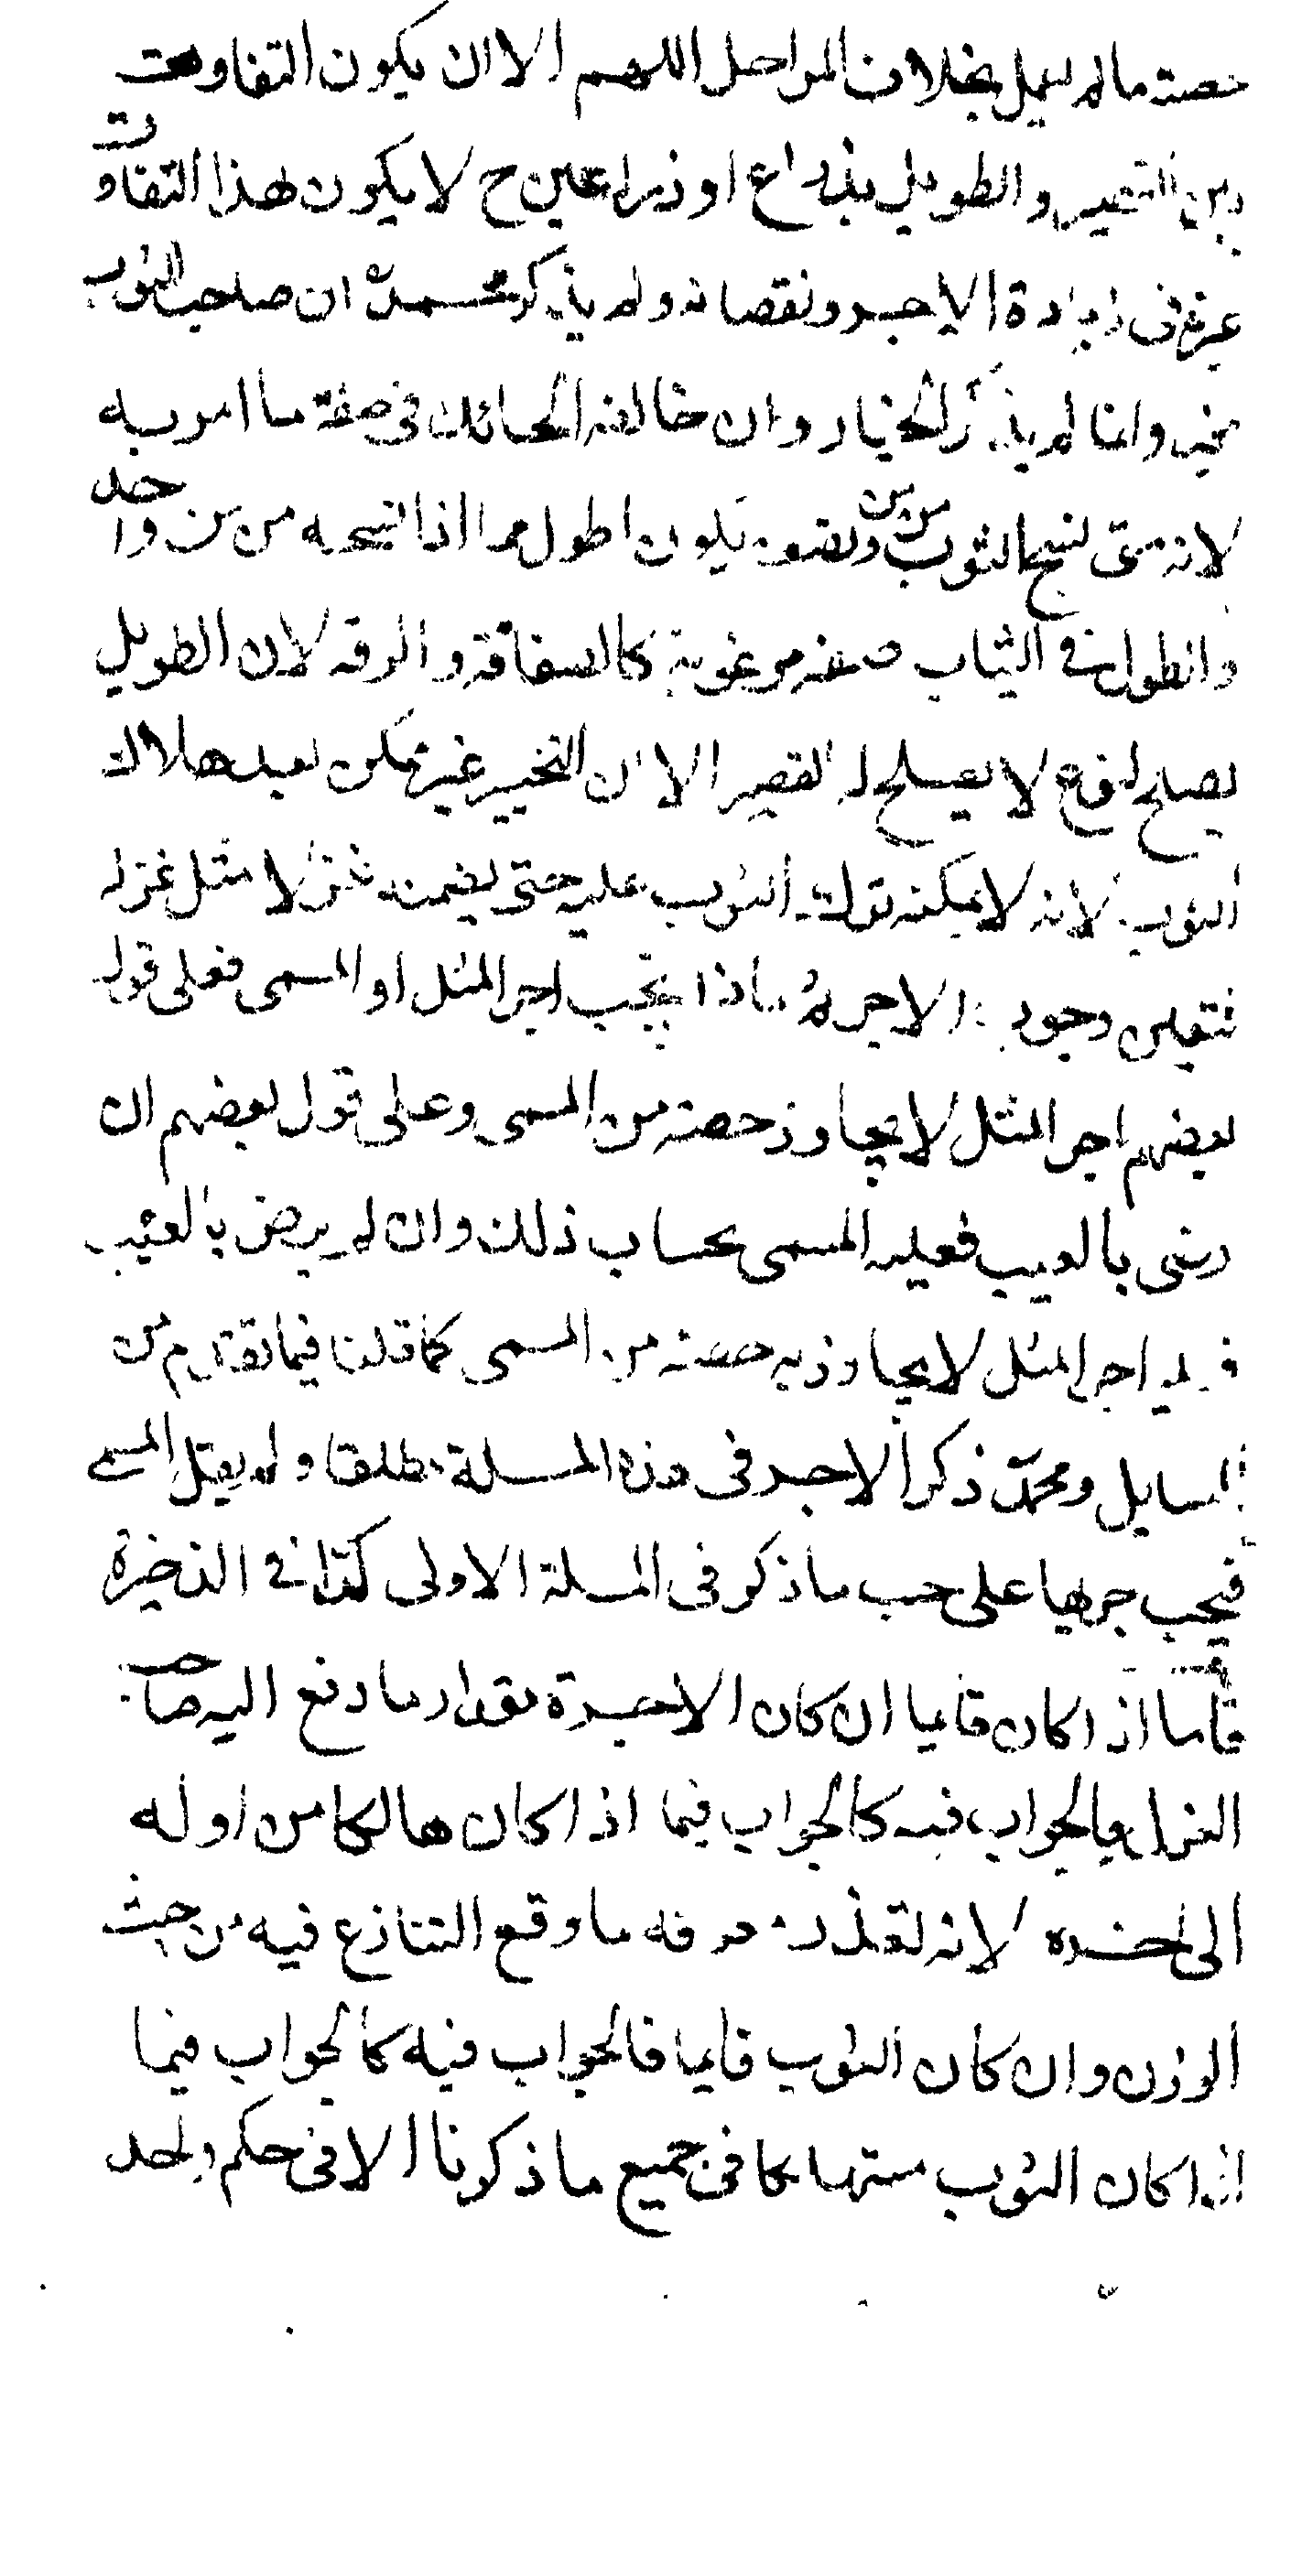 حصته ما لم يعمل بخلاف المراحل اللهم الا ان يكون التفاوت
بين القصير والطويل بذراع او ذراعين ح لا يكون لهذا التفاوت
عبرة فى زيادة الاجر ونقصانه ولم يذكر محمد ان صاحب الثوب
مخير وانما لم يذكر الخيار وان خالفه الحائك فى صفة ما امر به
لانه متى نسج الثوب من من ونصف يكون اطول مما اذا نسجه من من واحد
والطول فى الثياب صفة مرغوبة كالصفاقة والرقة لان الطويل
يصلح لنوع لا يصلح له القصير الا ان التخيير غير ممكن بعد هلاك
الثوب لانه لا يمكنه ترك الثوب عليه حتى يضمنه غزلا مثل غزله
فتعين وجوب الاجر ثم ماذا يجب اجر المثل او المسمى فعلى قول
بعضهم اجر المثل لا يجاوز حصته من المسمى وعلى قول بعضهم ان
رضى بالعيب فعليه المسمى بحساب ذلك وان لم يرض بالعيب
فعليه اجر المثل لا يجاوز به حصته من المسمى كما قلنا فيما تقدم من
المسايل ومحمد ذكر الاجر فى هذه المسلة مطلقا ولم يقل المسمى
فيجب جرها على حسب ما ذكر فى المسلة الاولى كذا فى الذخيرة
فأما اذا كان قايما ان كان الاجرة مقدار ما دفع اليه صاحب
الغزل فالجواب فيه كالجواب فيما اذا كان هالكا من اوله
الى اخره لانه تعذر معرفة ما وقع التنازع فيه من حيث
الوزن وان كان الثوب قايما فالجواب فيه كالجواب فيما
اذا كان الثوب مستهلكا فى جميع ما ذكرنا الا فى حكم واحد